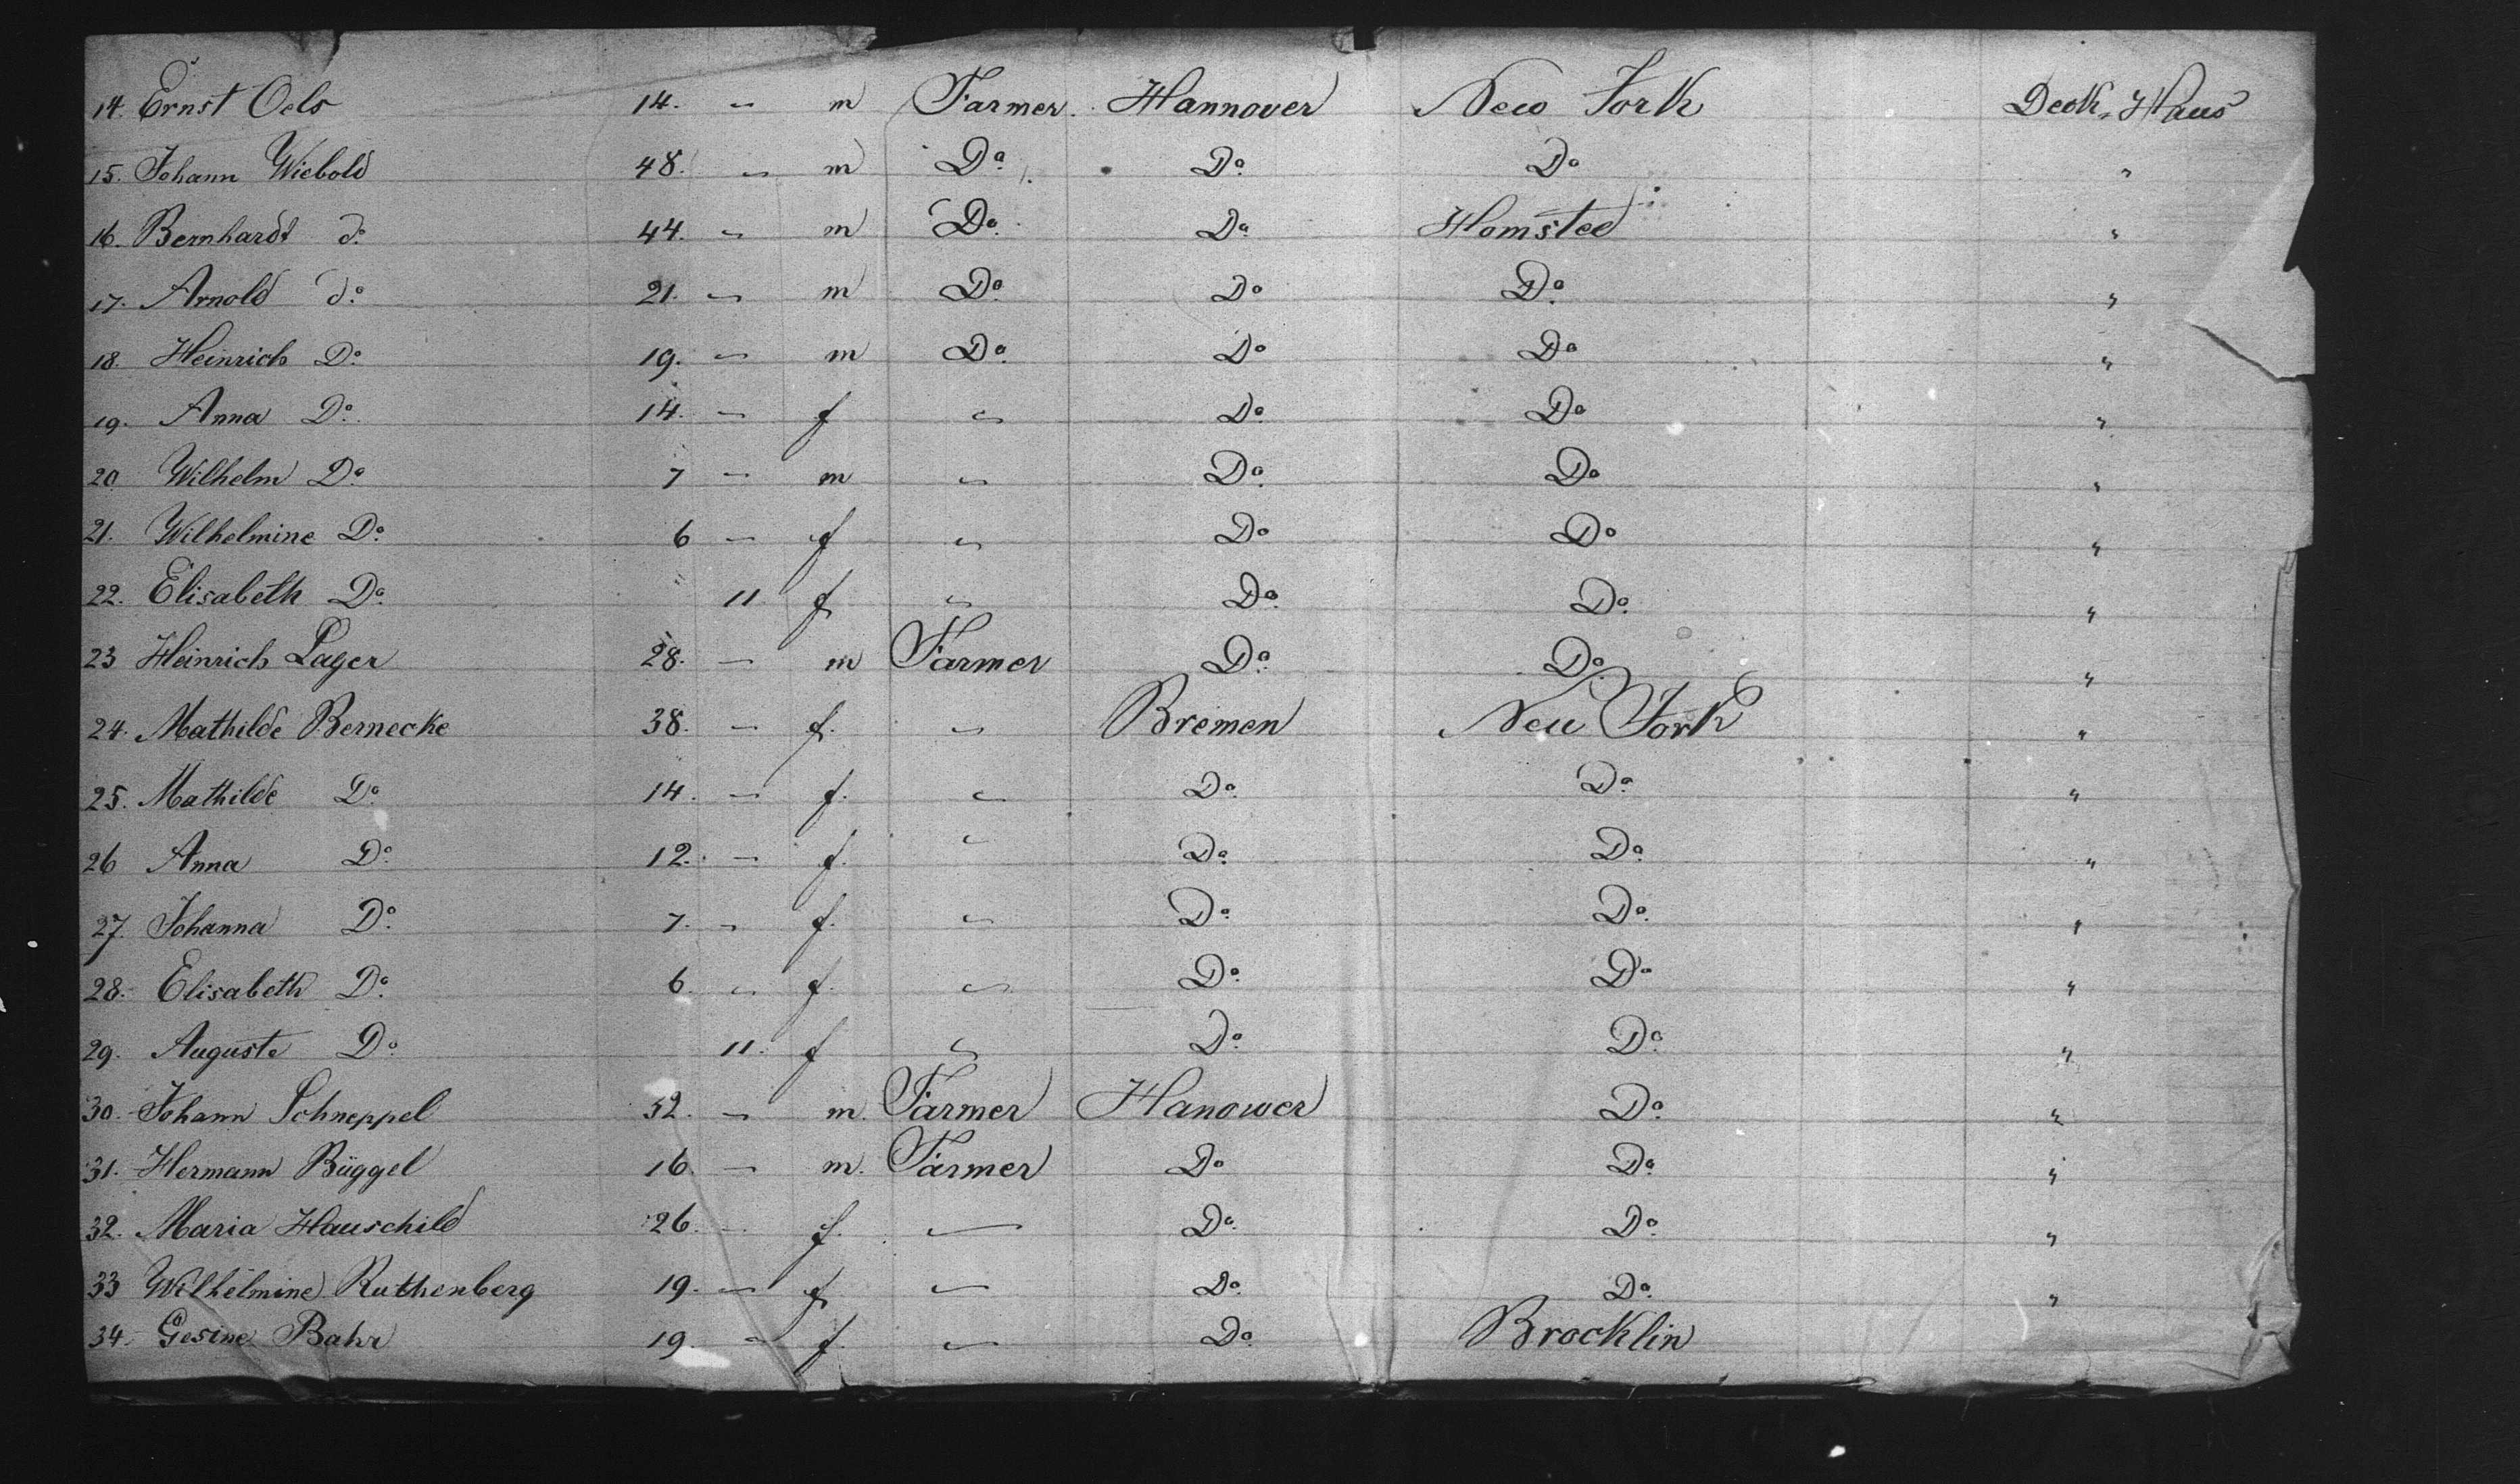 14. Ernst Oels 14. " m Farmer. Hannover New York Deck-Haus
15. Johann Wiebold 48. " m Do. Do. Do "
16. Bernhardt do. 44. " m Do. Do. Homsted "
17. Arnold do. 21. " m Do. Do Do. "
18. Heinrich Do. 19. " m Do. Do Do "
19. Anna Do. 14. " f " Do. Do "
20 Wilhelm Do. 7 " m " Do. Do "
21. Wilhelmine Do. 6 " f " Do Do "
22. Elisabeth Do. 11 f " Do. Do. "
23 Heinrich Lager 28. " m Farmer Do. Do. "
24. Mathilde Bernecke 38. " f. " Bremen New York "
25. Mathilde Do. 14. " f. " Do. Do. "
26 Anna Do. 12. " f. " Do. Do. "
27. Johanna Do. 7. " f. " Do. Do. "
28. Elisabeth Do. 6. " f. " Do. Do "
29. Auguste Do. 11. f " Do. Do. "
30. Johann Schneppel 52. " m. Farmer Hanower Do. "
31. Hermann Büggel 16. " m. Farmer Do Do. "
32. Maria Hauschild 26. " f. — Do. Do. "
33 Wilhelmine Ruthenberg 19. " f — Do. Do. "
34. Gesine Bahr 19. " f. — Do. Brocklin